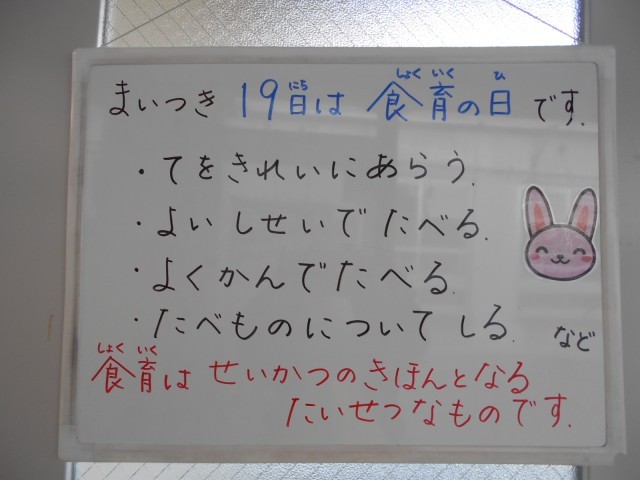 まいつき 19日は 食育の日 です.
にち しょく いく ひ
・てをきれいにあらう.
・よい しせいで たべる.
・よくかんでたべる.
・たべものについて しる. など
しょく いく
食育は せいかつのきほんとなる
たいせつなものです.